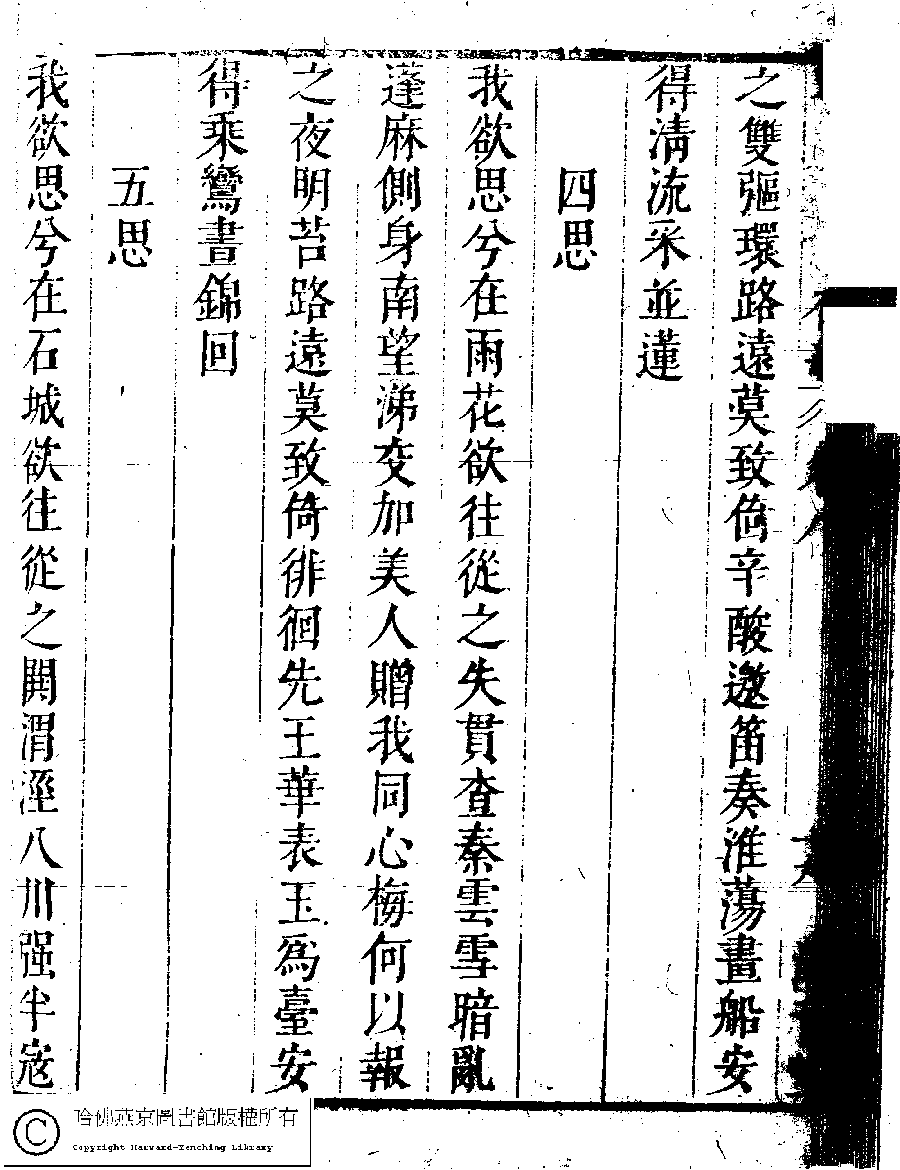 之雙彄環路遠莫致倚辛酸邀笛奏淮蕩畫船安
得淸流采並蓮
四思
我欲思兮在雨花欲往從之失貫查秦雲雪暗亂
蓬麻側身南望涕交加美人贈我同心梅何以報
之夜明苔路遠莫致倚徘徊先王華表玉爲臺安
得乘鸞書錦回
五思
我欲思兮在石城欲往從之閧渭涇八川强半寇
哈佛燕京圖書館版權所有
Copyright Harvard-Yenching Library